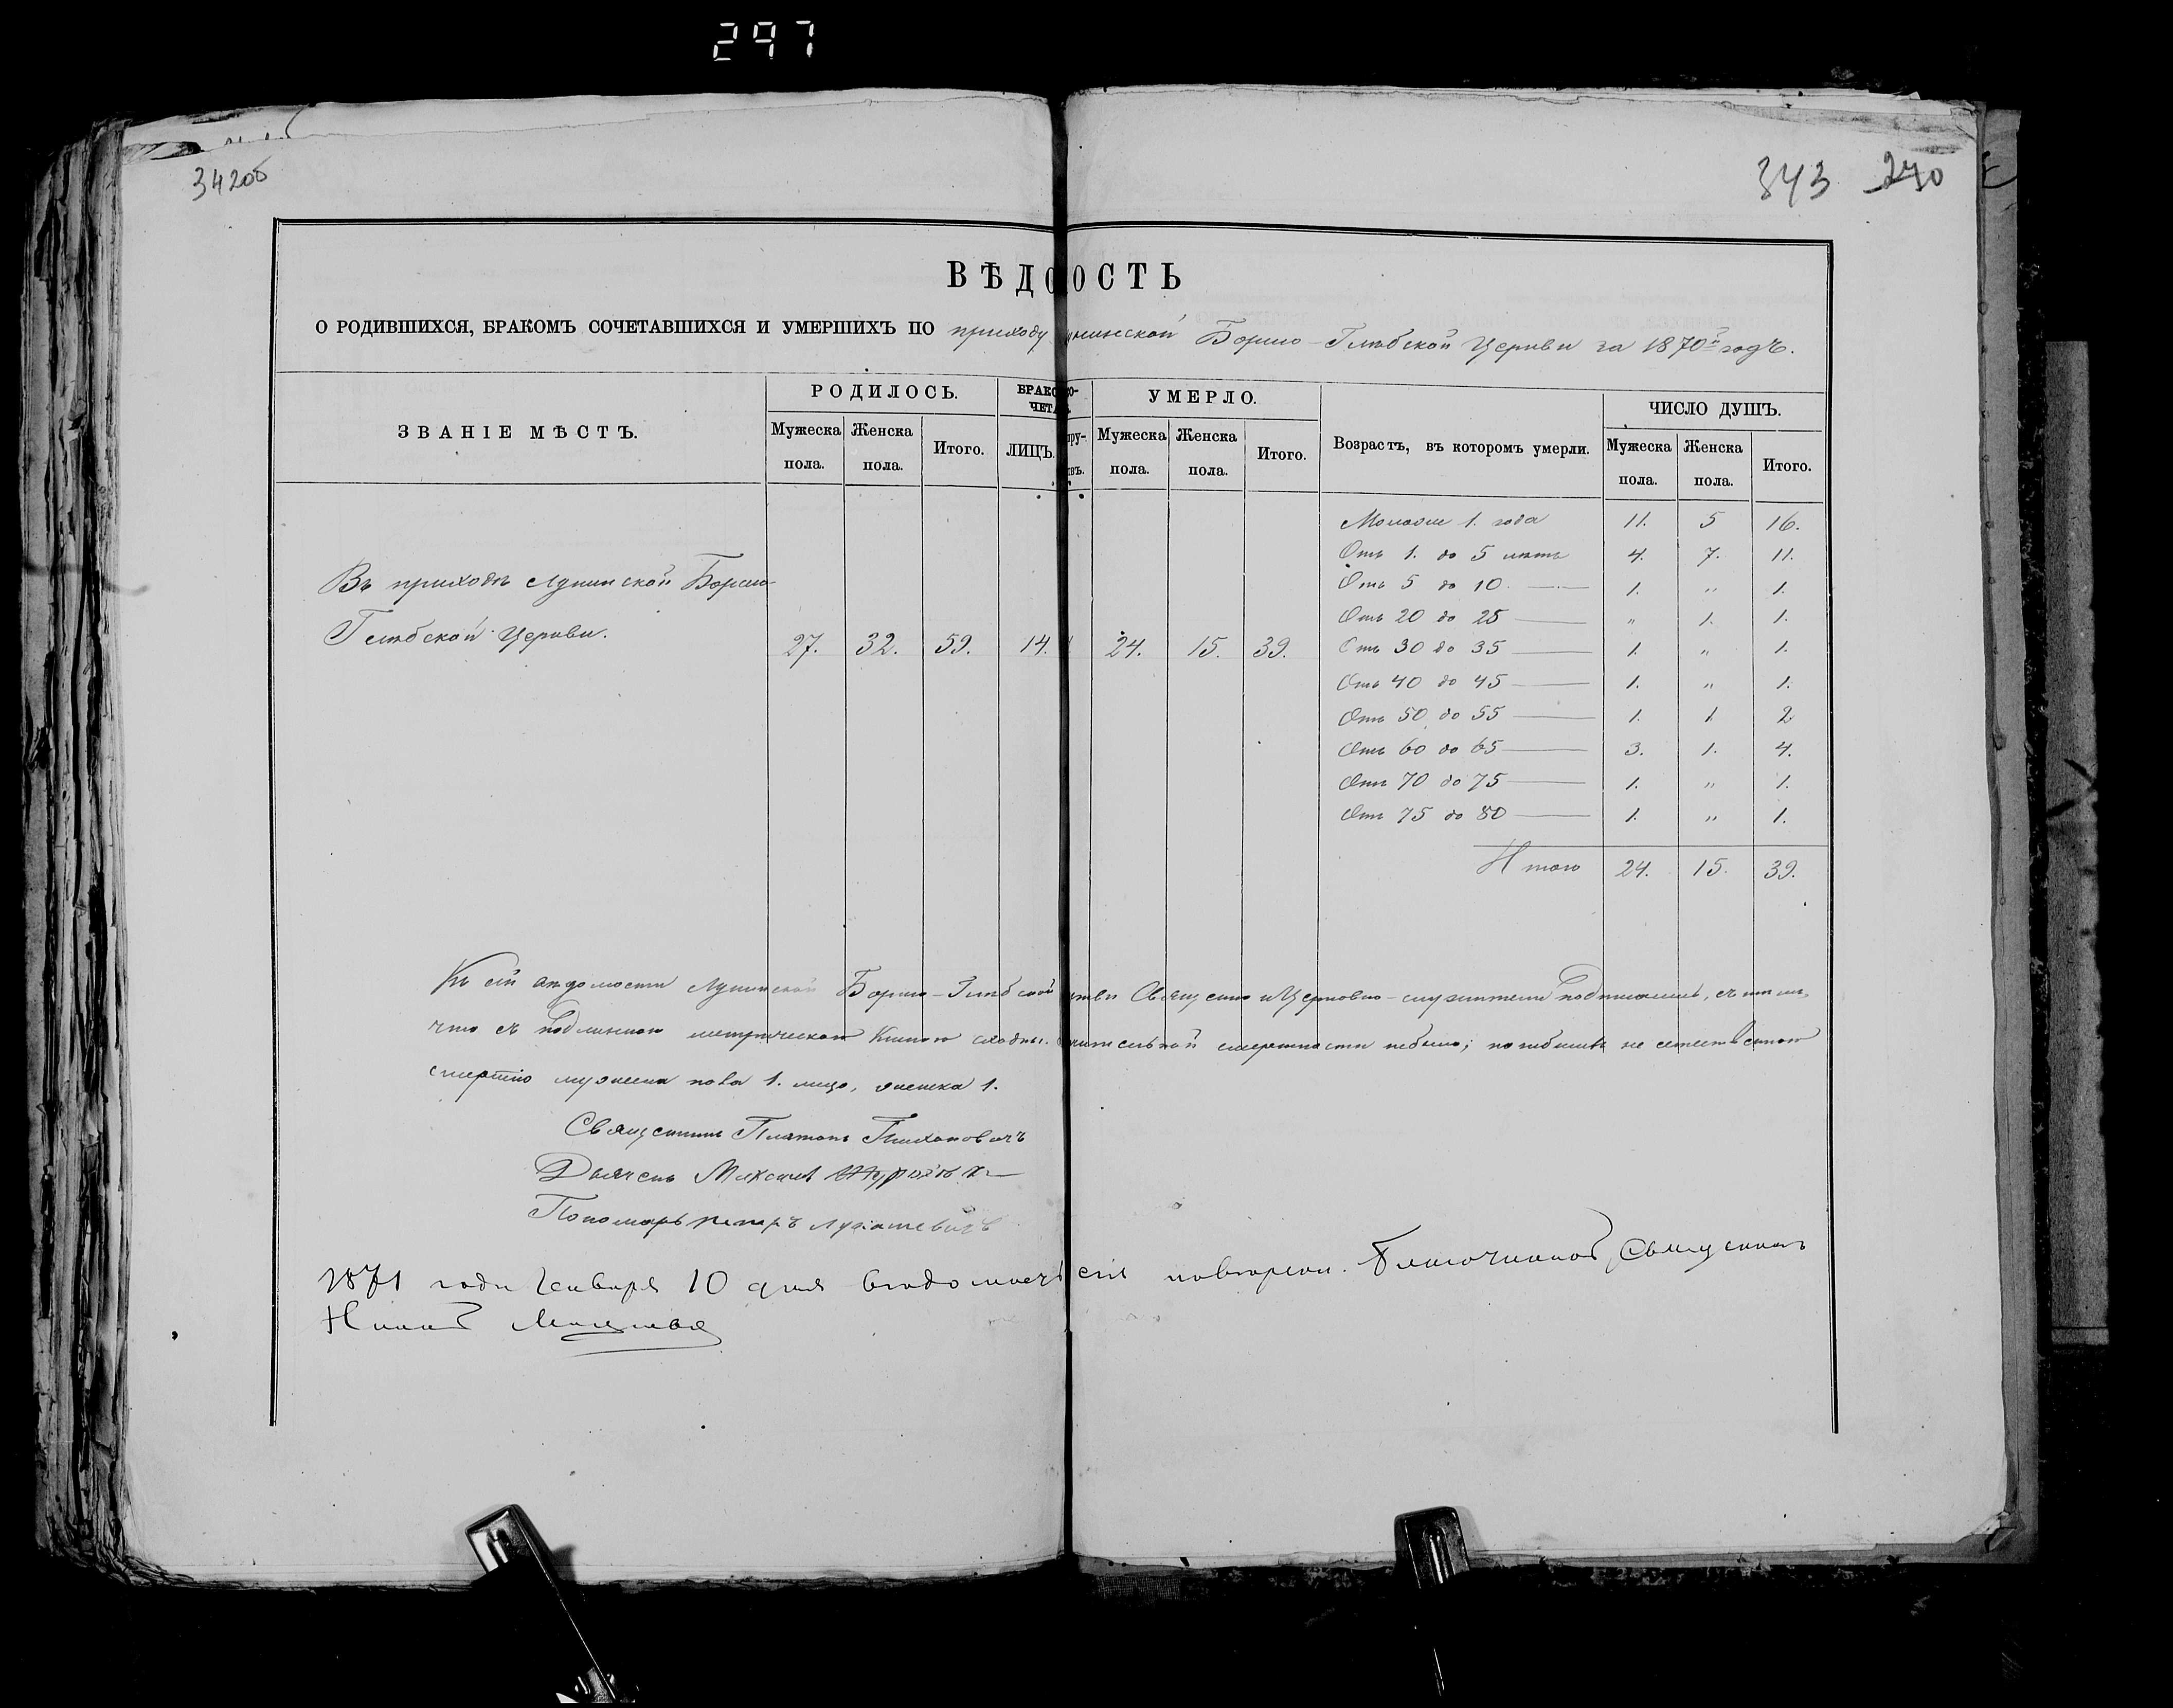 297
342об
343 270
ВѢДО ОСТЬ
О РОДИВШИХСЯ, БРАКОМЪ СОЧЕТАВШИХСЯ И УМЕРШИХЪ ПО приходу унинской Борисо-Глѣбской Церкви за 1870й годъ.
ЗВАНІЕ МѢСТЪ.
РОДИЛОСЬ.
Мужеска пола.
Женска пола.
Итого.
БРАКО СО-
ЧЕТА
ЛИЦЪ.
УМЕРЛО.
Мужеска пола.
Женска пола.
Итого.
Возрастъ, въ которомъ умерли.
ЧИСЛО ДУШЪ.
Мужеска пола.
Женска пола.
Итого.
Въ приходѣ Лунинской Борисо-
Глѣбской Церкви.
27. 32. 59. 14. 24. 15. 39.
Моложе 1. года 11. 5 16.
Отъ 1. до 5 лѣтъ 4. 7. 11.
Отъ 5 до 10. — 1. " 1.
Отъ 20 до 25 — " 1. 1.
Отъ 30 до 35 — 1. " 1.
Отъ 40 до 45 — 1. " 1.
Отъ 50 до 55 — 1. 1 2
Отъ 60 до 65 — 3. 1. 4.
Отъ 70 до 75 — 1. " 1.
Отъ 75 до 80 — 1. " 1.
Итого 24. 15. 39.
Къ сей вѣдомости Лунинской Борисо-Глѣбской Священно и Церковно-служители подписались, съ тѣмъ,
что съ подлинною метрическою Книгою сходны. смертности небыло; погибшихъ не естественною
смертію мужеска пола 1. лицо, женска 1.
Священникъ Платонъ Тихановичъ
Дьячекъ Михаилъ
Пономарь Петръ
1871 года Января 10 дня вѣдомость сія повѣрена. Благочинный Священникъ